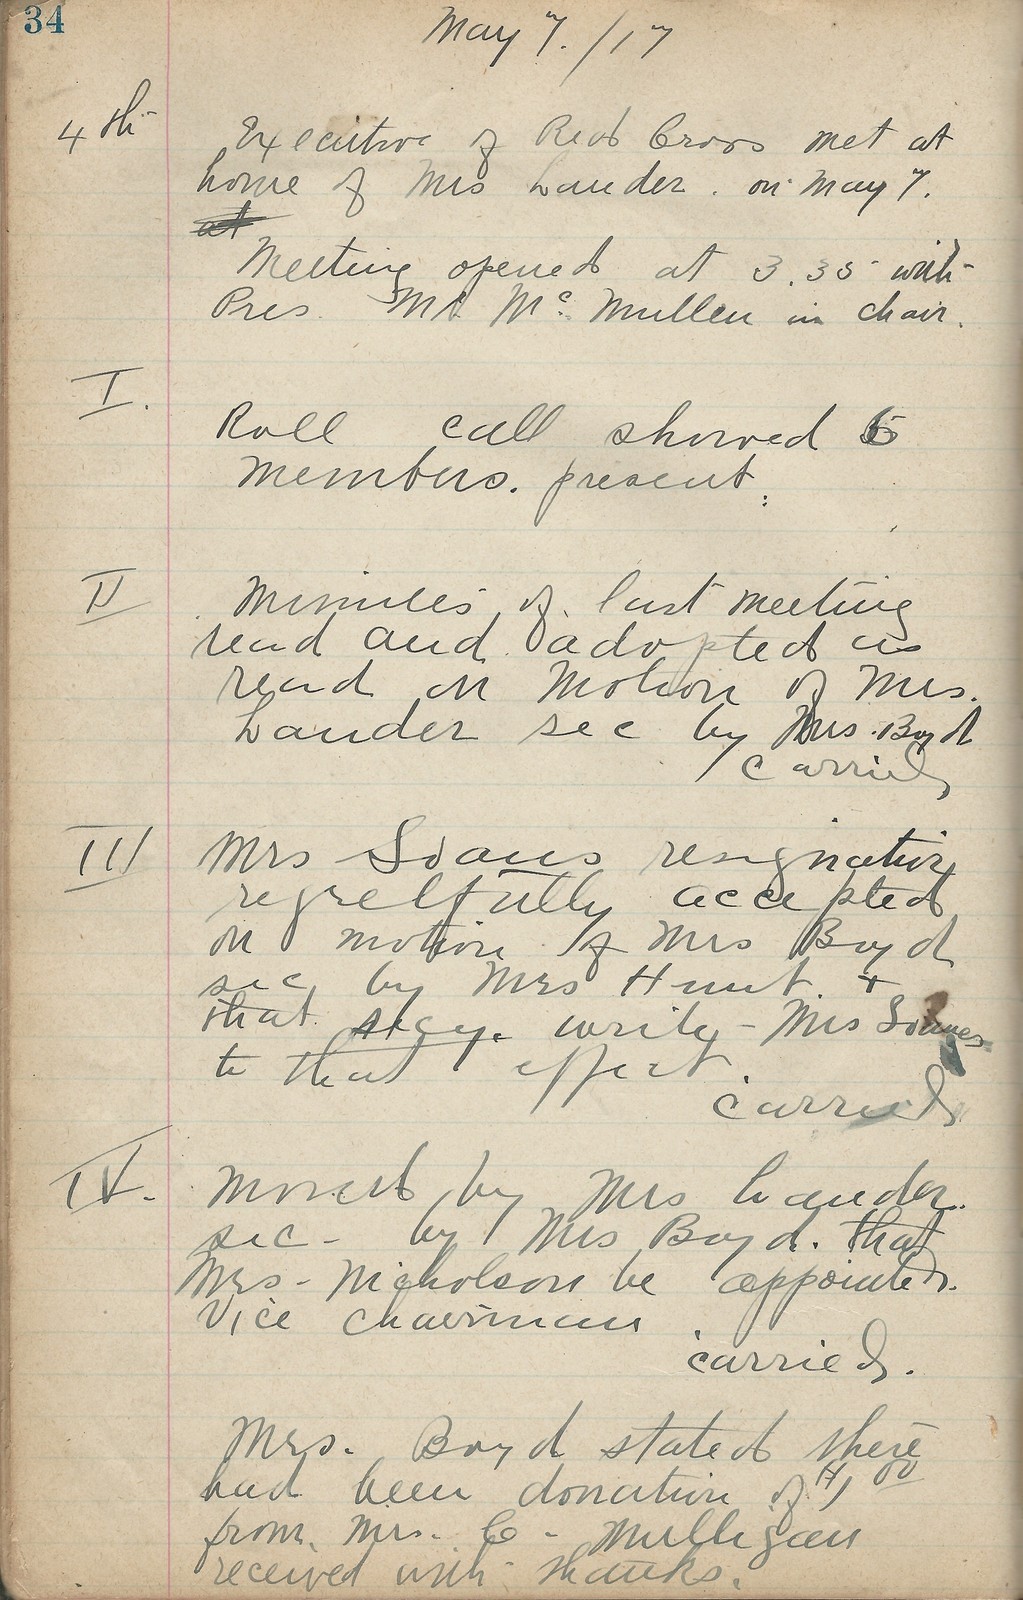 34
May 7. /17
4th
Executive of Red Cross met at
home of Mrs Lander. on May 7.
at
Meeting opened at 3.35 with
Pres. Mrs McMullen in chair.
I.
Roll call showed
members. present.
II
Minutes of last meeting
read and adopted as
read on Motion of Mrs.
Lander sec by Mrs. Boyd
carried
III
Mrs Soans resignation
regretfully accepted
on motion of Mrs Boyd
sec by Mrs Hunt. +
that secy. write Mrs
to that effect.
carried
IV.
Moved by Mrs Lander.
sec - by Mrs Boyd. that
Mrs - Nicholson be appointed.
Vice chairman
carried.
Mrs. Boyd stated there
had been donation of $1 00
from. Mrs. C - Mulligan
received with thanks.